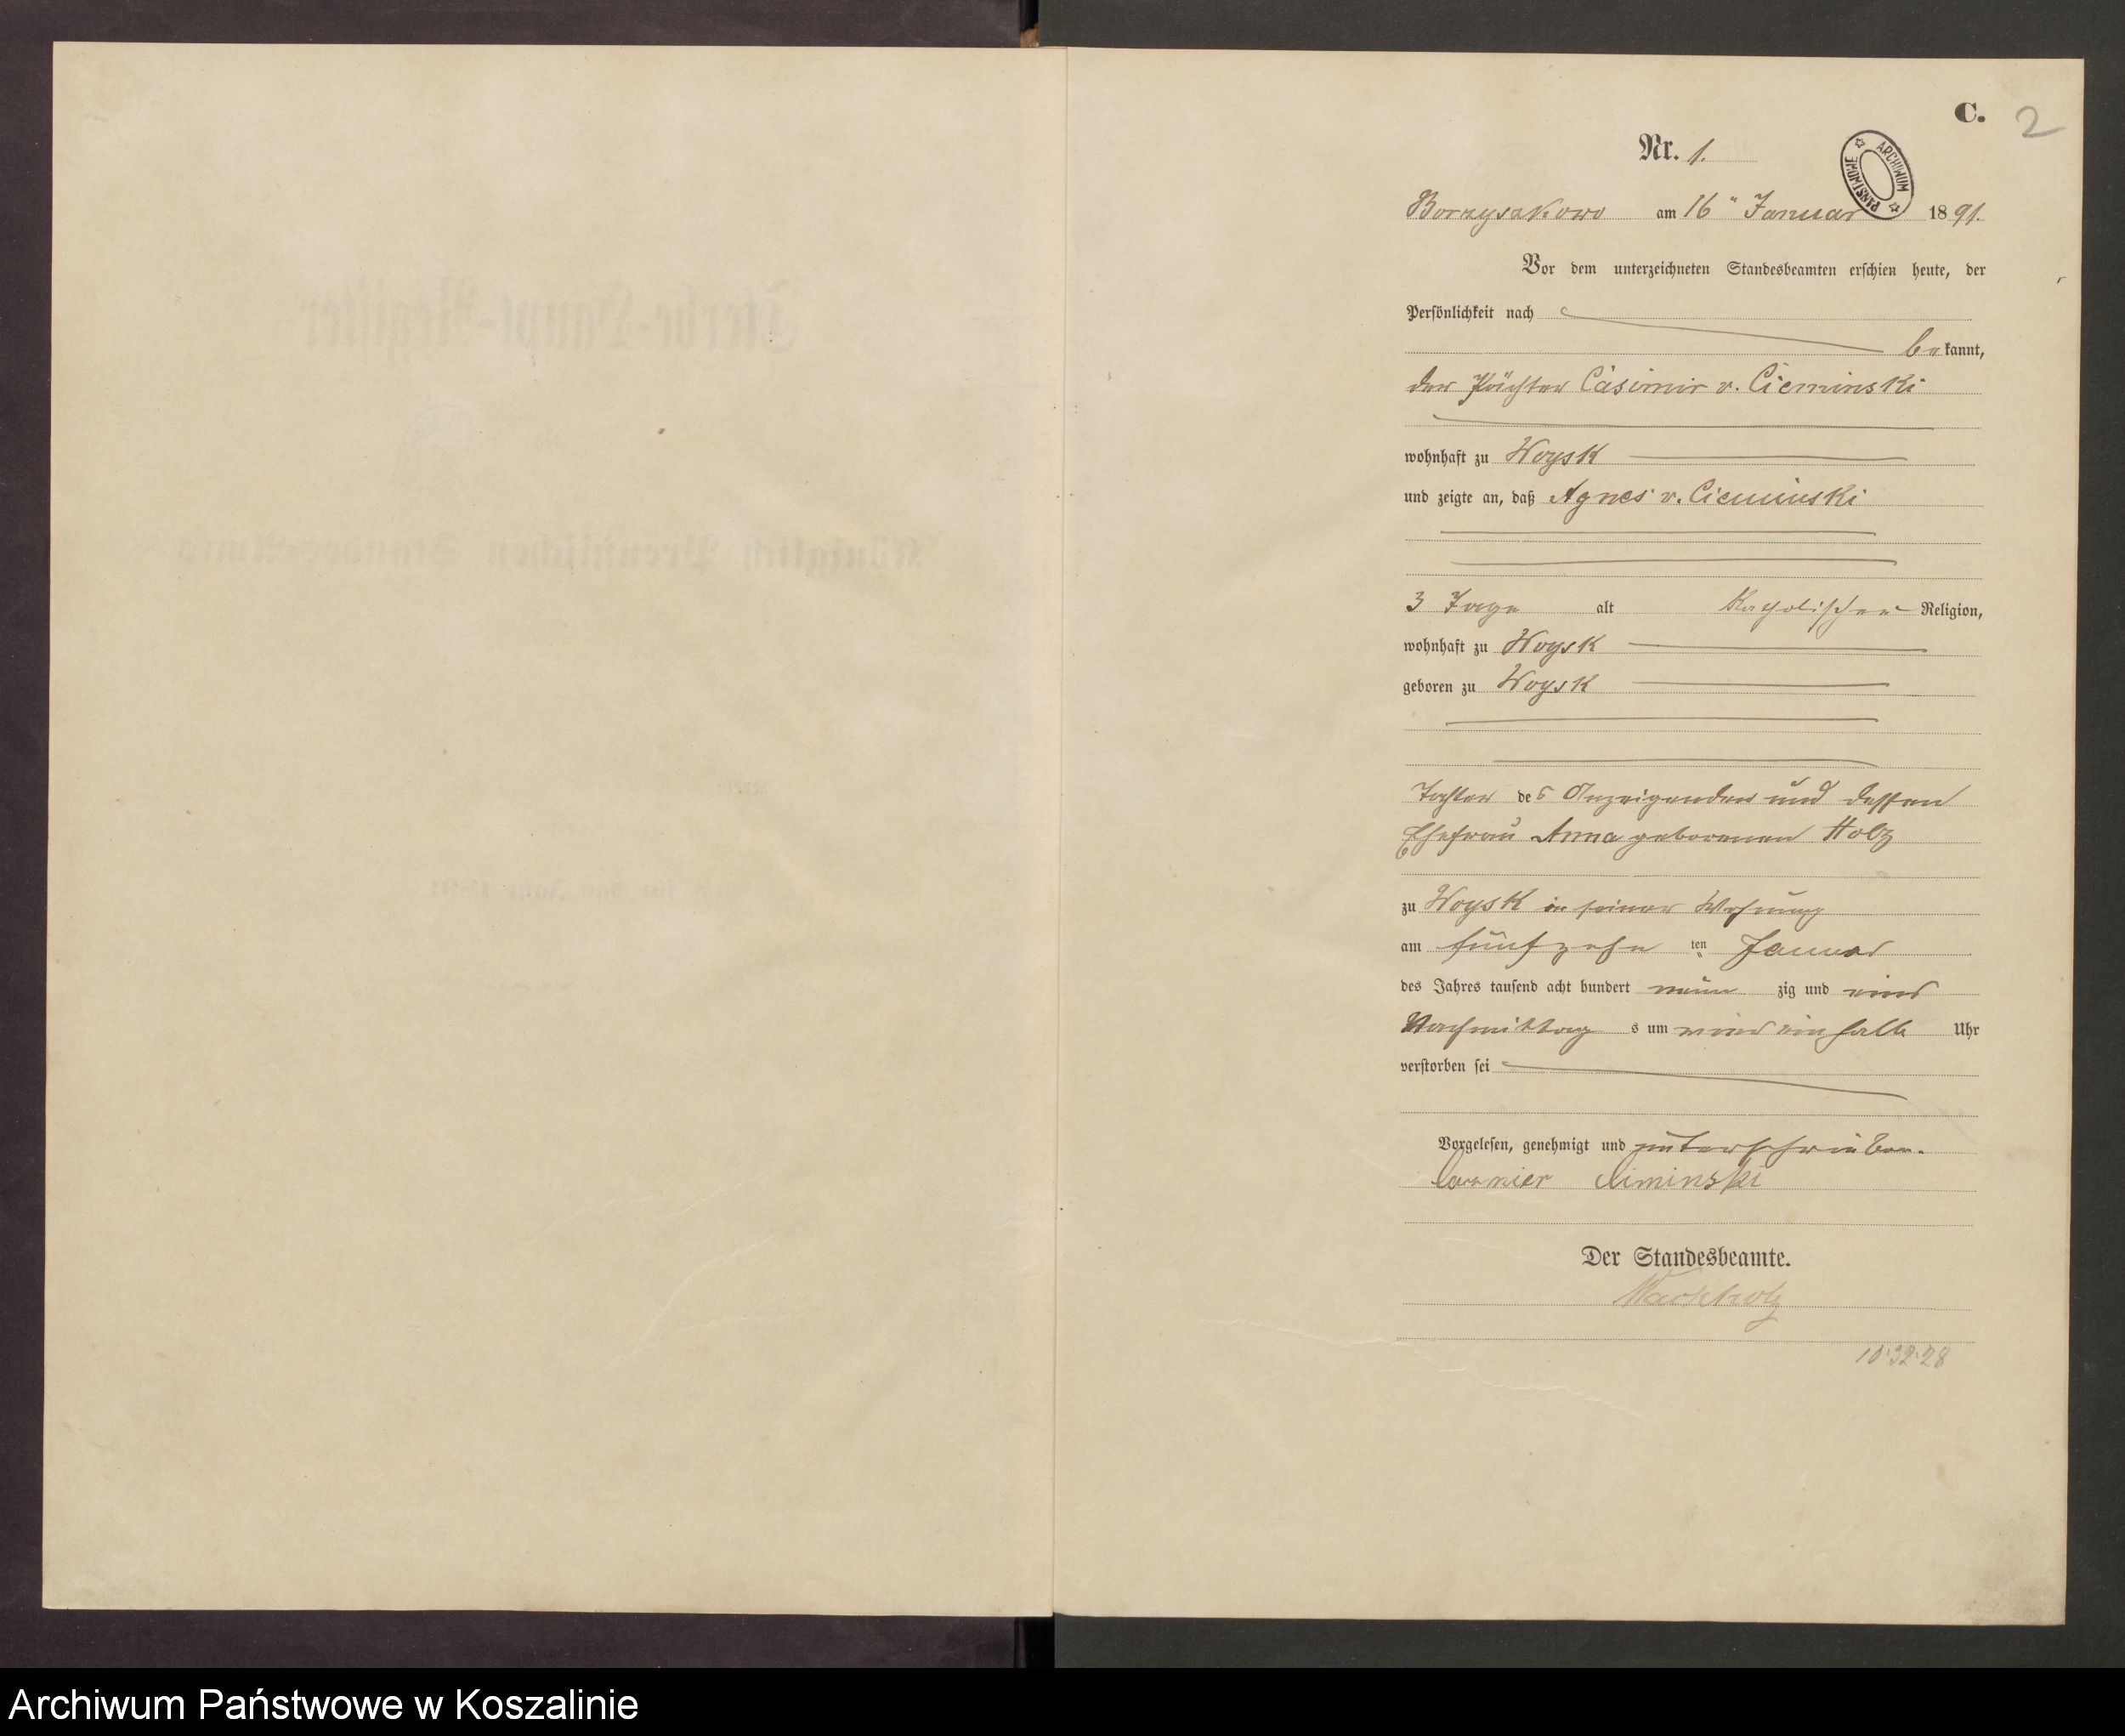 C. 2
Nr. 1.
ARCHIWUM PAŃSTWOWE
Borzyszkowo am 16" Januar 1891.
Vor dem unterzeichneten Standesbeamten erschien heute, der
Persönlichkeit nach
bekannt,
der Pächter Casimir v. Cieminski
wohnhaft zu Woysk
und zeigte an, daß Agnes v. Cieminski
3 Tage alt Katholischer Religion,
wohnhaft zu Woysk
geboren zu Woysk
Tochter des Anzeigenden und dessen
Ehefrau Anna geborenen Holz
zu Woysk in seiner Wohnung
am fünfzehn ten Januar
des Jahres tausend acht hundert neun zig und eins
Nachmittag s um halb Uhr
verstorben sei
Vorgelesen, genehmigt und unterschrieben.
Ciminski
Der Standesbeamte.
Wachholz
10:32:28
Archiwum Państwowe w Koszalinie